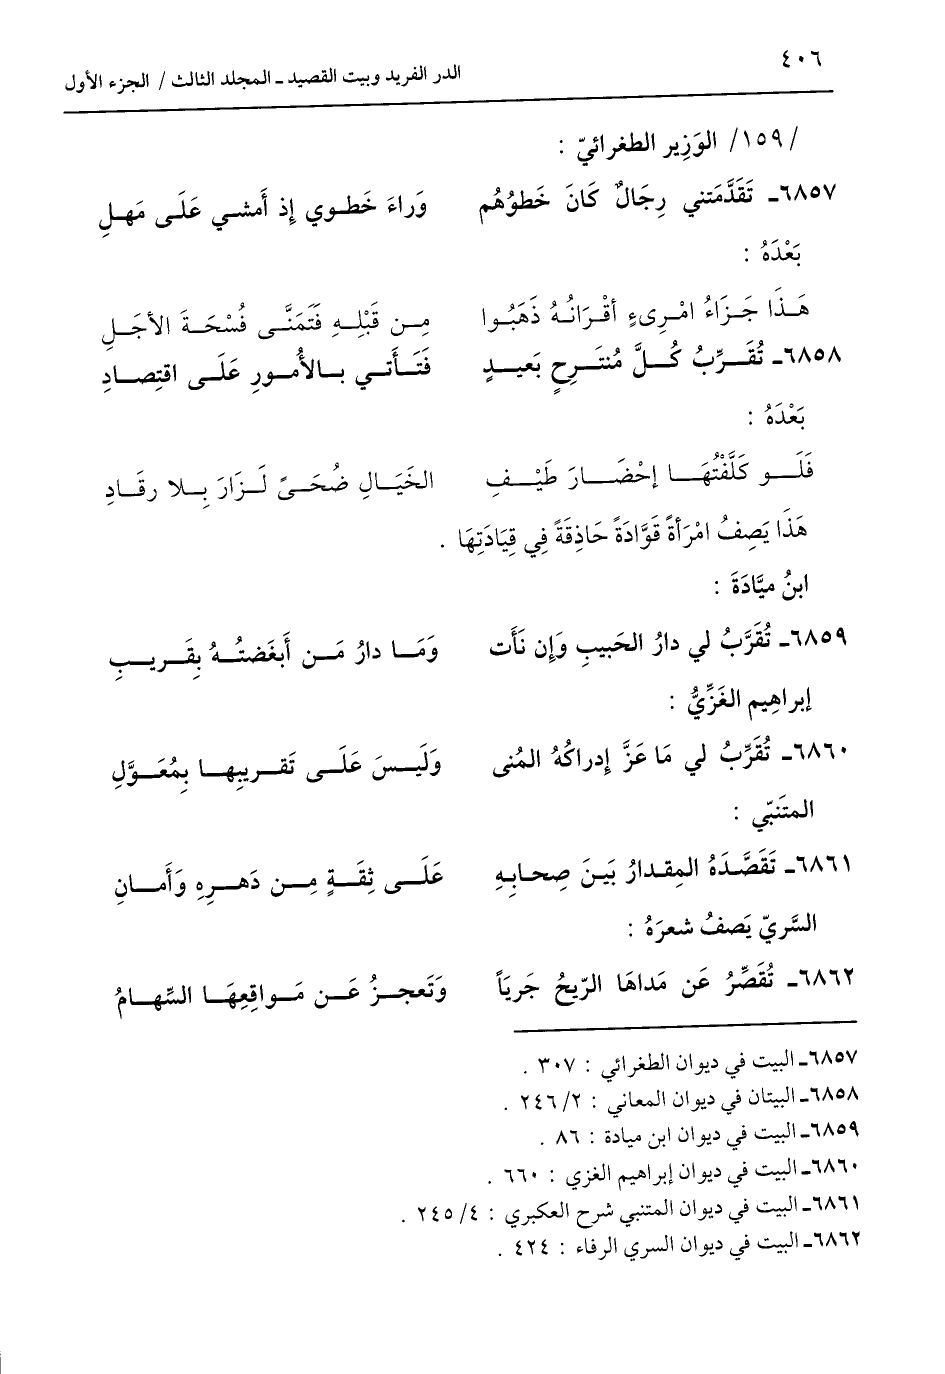 ٤٠٦
الدر الفريد وبيت القصيد ـ المجلد الثالث / الجزء الأول
/١٥٩/ الوَزِير الطغرائيّ :
٦٨٥٧ـ تَقَدَّمَتني رِجَالٌ كَانَ خَطوُهُم وَراءَ خَطوي إذ أَمشي عَلَى مَهلِ
بَعْدَهُ :
هَذَا جَزَاءُ امْرِىءٍ أقْرَانُهُ ذَهَبُوا مِن قَبْلِهِ فَتَمَنَّى فُسْحَةَ الأجَلِ
٦٨٥٨ـ تُقَرِّبُ كُلَّ مُنتَرِحٍ بَعيدٍ فَتَأتي بالأُمورِ عَلَى اقتِصادِ
بَعْدَهُ :
فَلَو كَلَّفْتُهَا إحْضَارَ طَيْفِ الخَيَالِ ضُحَىً لَزَارَ بِلا رقَادِ
هَذَا يَصِفُ امْرَأةً قَوَّادَةً حَاذِقَةً فِي قِيَادَتِهَا .
ابنُ ميَّادَةَ :
٦٨٥٩ـ تُقَرَّبُ لي دارُ الحَبيبِ وَإن نَأَت وَمَا دارُ مَن أَبغَضتُهُ بِقَريبِ
إبراهِيم الغَزِّيُّ :
٦٨٦٠ـ تُقَرِّبُ لي مَا عَزَّ إدراكُهُ المُنى وَلَيسَ عَلَى تَقريبِها بِمُعَوَّلِ
المتَنبّي :
٦٨٦١ـ تَقَصَّدَهُ المِقدارُ بَينَ صِحابِهِ عَلَى ثِقَةٍ مِن دَهرِهِ وَأَمانِ
السَّريّ يَصفُ شعرَهُ :
٦٨٦٢ـ تُقَصِّرُ عَن مَداهَا الرّيحُ جَرياً وَتَعجزُ عَن مَواقِعِهَا السِّهامُ
٦٨٥٧ـ البيت في ديوان الطغرائي : ٣٠٧ .
٦٨٥٨ـ البيتان في ديوان المعاني : ٢/ ٢٤٦ .
٦٨٥٩ـ البيت في ديوان ابن ميادة : ٨٦ .
٦٨٦٠ـ البيت في ديوان إبراهيم الغزي : ٦٦٠ .
٦٨٦١ـ البيت في ديوان المتنبي شرح العكبري : ٤/ ٢٤٥ .
٦٨٦٢ـ البيت في ديوان السري الرفاء : ٤٢٤ .